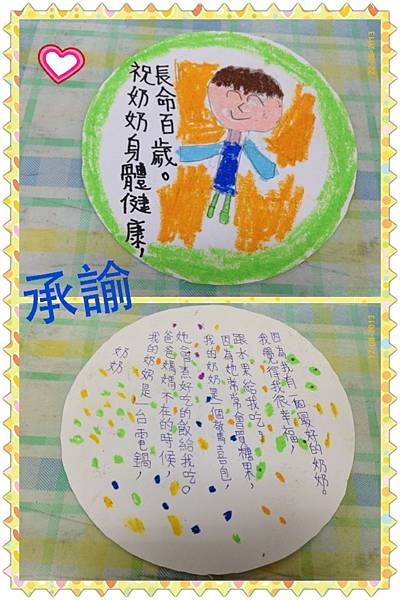 祝奶奶身體健康，
長命百歲。
承諭
奶奶
我的奶奶是一台電鍋，
爸爸媽媽不在的時候，
她會煮好吃的飯給我吃。
我的奶奶是一個驚喜包，
因為她常常會買糖果，
跟水果給我吃。
我覺得我很幸福，
因為我有一個最好的奶奶。